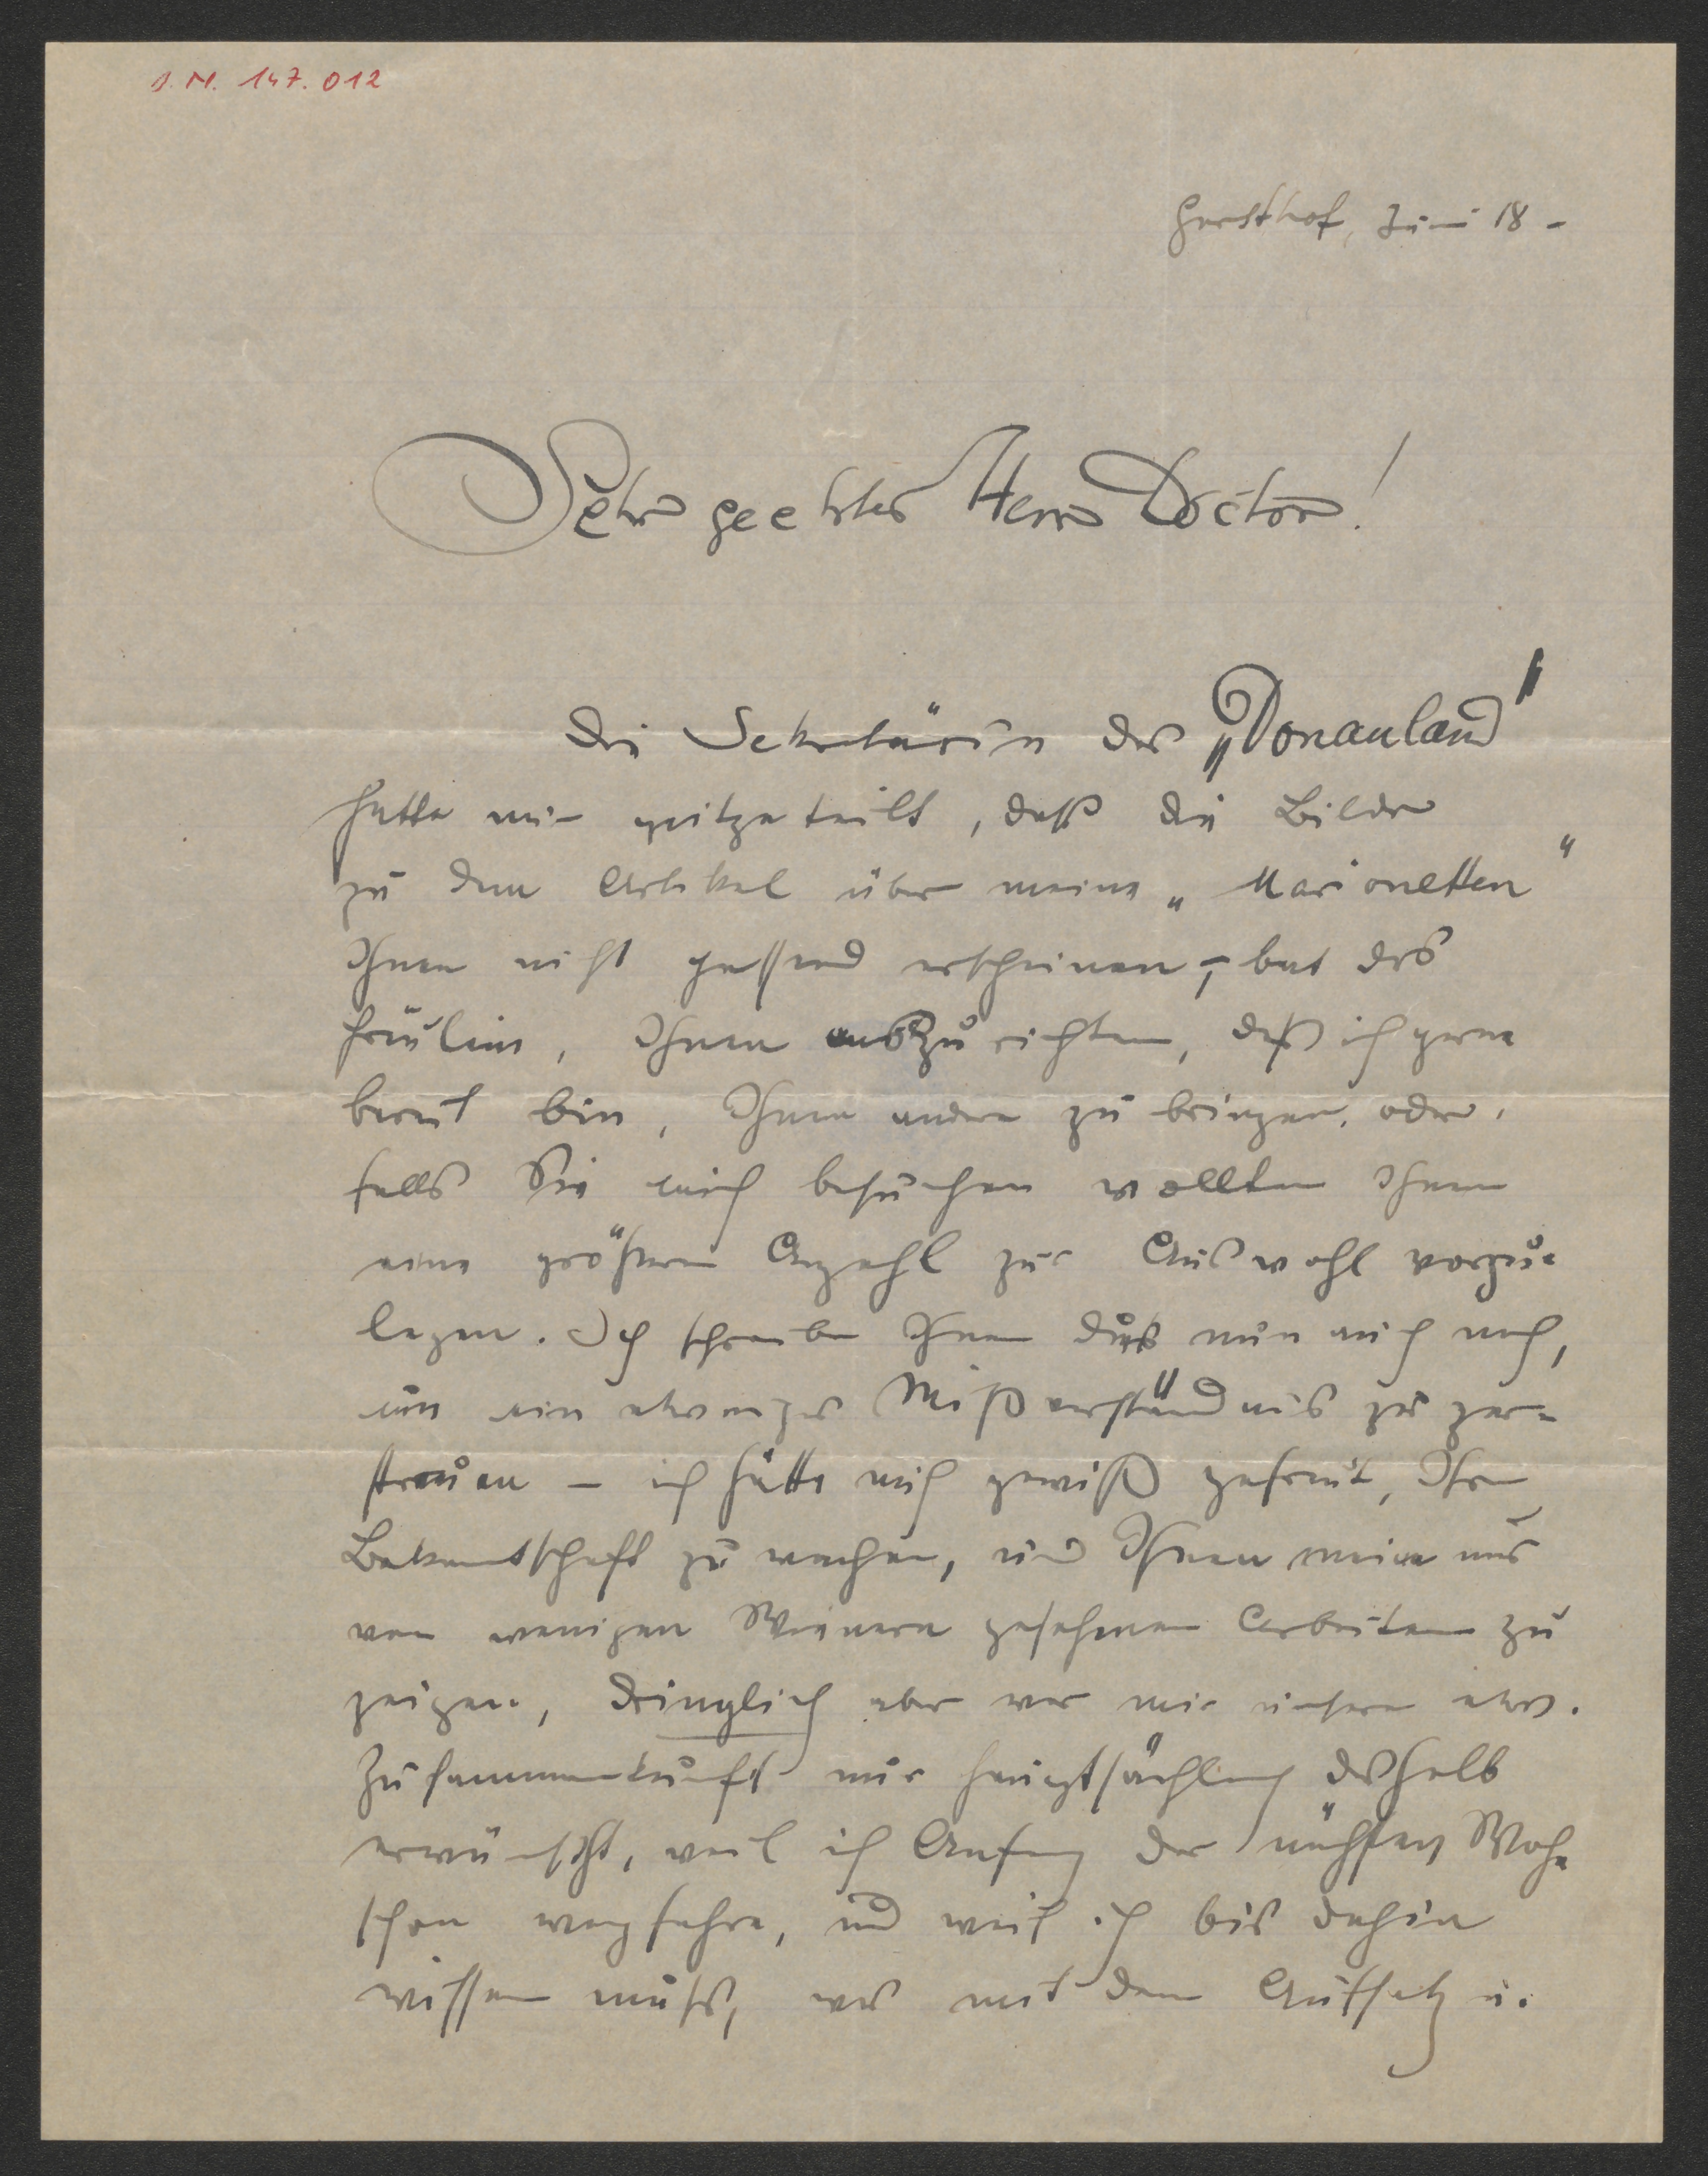 I. N. 147.012
Gersthof, Juni 18 –
Sehr geehrter Herr Doctor!
Die Sekretärin des „Donauland"
hatte mir mitgeteilt, daß die Bilder
zu dem Artikel über meine „Marionetten"
Ihnen nicht passend erscheinen, – bat das
Fräulein, Ihnen auszurichten, daß ich gerne
bereit bin, Ihnen andere zu bringen, oder,
falls Sie mich besuchen wollten Ihnen
eine größere Anzahl zur Auswahl vorzu-
legen. Ich schreibe Ihnen dies nun auch noch,
um ein etwaiges Mißverständnis zu zer-
streuen – ich hätte mich gewiß gefreut, Ihre
Bekanntschaft zu machen, und Ihnen meine nur
von wenigen Wienern gesehenen Arbeiten zu
zeigen, dringlich aber war mir unsere etw.
Zusammenkunft nur hauptsächlich deshalb
erwünscht, weil ich Anfang der nächsten Woche
schon wegfahre, und weil ich bis dahin
wissen muß, was mit dem Aufsatz u.